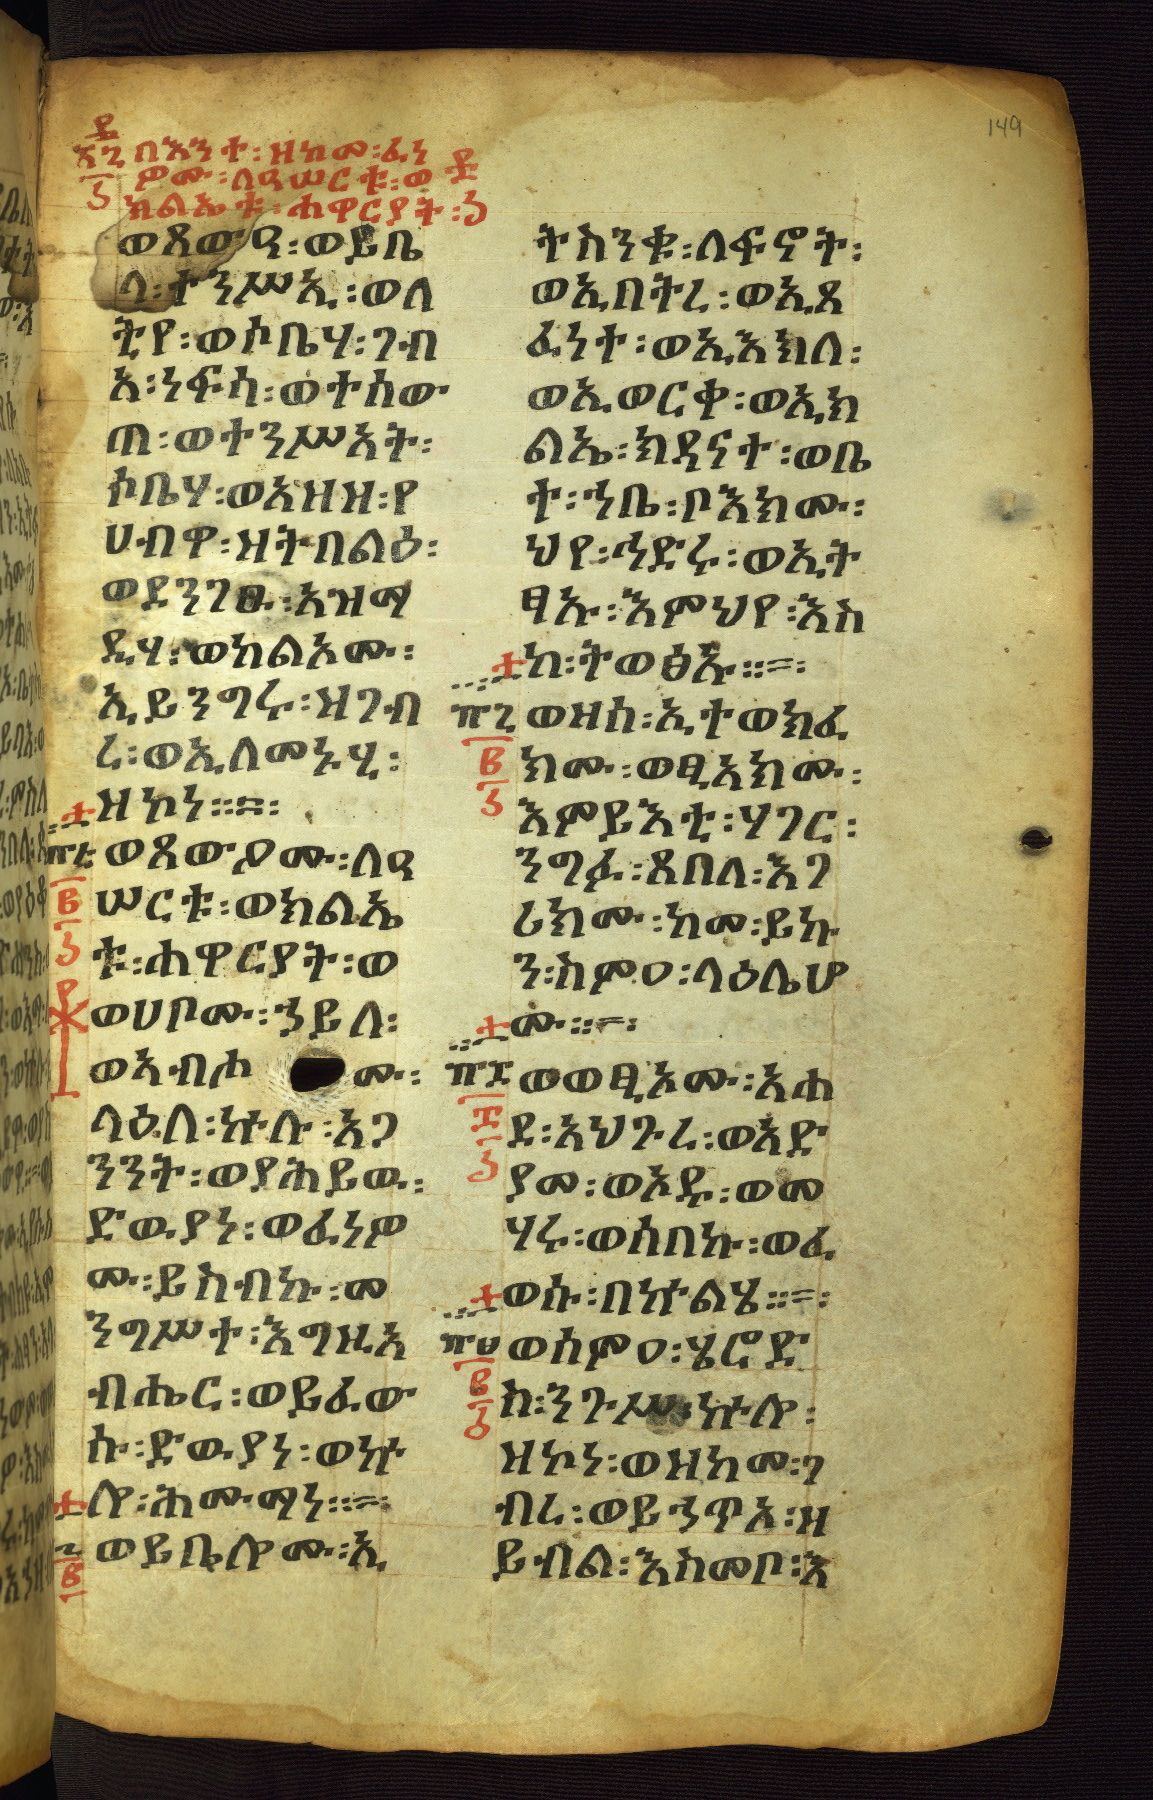 149
በእንተ፡ዘከመ፡ፈነ
ዎሙ፡ለዐሠርቱ፡ወ
ክልኤቱ፡ሐዋርያት፡
ወጸውዓ፡ወይቤ
ላ፡ተንሥኢ፡ወለ
ትየ፡ወሶቤሃ፡ገብ
አ፡ነፍሳ፡ወተሰው
ጠ፡ወተንሥአት፡
ሶቤሃ፡ወአዘዘ፡የ
ሀብዋ፡ዝትበልዕ፡
ወደንገፁ፡አዝማ
ዲሃ፡ወከልአሙ፡
ኢይንግሩ፡ዝገብ
ረ፡ወኢለመኑሂ፡
ዘኮነ።
ወጸውዖሙ፡ለዐ
ሠርቱ፡ወክልኤ
ቱ፡ሐዋርያት፡ወ
ወሀቦሙ፡ኀይለ፡
ወአብሐ ሙ፡
ላዕለ፡ኵሉ፡አጋ
ንንት፡ወያሕይዉ፡
ድዉያነ፡ወፈነዎ
ሙ፡ይስብኩ፡መ
ንግሥተ፡እግዚአ
ብሔር፡ወይፈው
ሱ፡ድዉያነ፡ወኵ
ሎ፡ሕሙማነ።
ወይቤሎሙ፡ኢ
ትስንቁ፡ለፍኖት፡
ወኢበትረ፡ወኢጸ
ፈነተ፡ወኢእክለ፡
ወኢወርቀ፡ወኢክ
ልኤ፡ክዳናተ፡ወቤ
ተ፡ኀቤ፡ቦእክሙ፡
ህየ፡ኀድሩ፡ወኢት
ፃኡ፡እምህየ፡እስ
ከ፡ትወፅኡ።
ወዘሰ፡ኢተወክፈ
ክሙ፡ወፂአክሙ፡
እምይእቲ፡ሃገር፡
ንግፉ፡ጸበለ፡እገ
ሪክሙ፡ከመ፡ይኩ
ን፡ስምዐ፡ላዕሌሆ
ሙ።
ወወፂኦሙ፡አሐ
ደ፡አህጉረ፡ወአድ
ያመ፡ወኦዱ፡ወመ
ሃሩ፡ወሰበኩ፡ወፈ
ወሱ፡በኵልሄ።
ወሰምዐ፡ሄሮድ
ስ፡ንጉሥ፡ኵሎ፡
ዘኮነ፡ወዘከመ፡ገ
ብረ፡ወይኀጥአ፡ዘ
ይብል፡እስመቦ፡እ